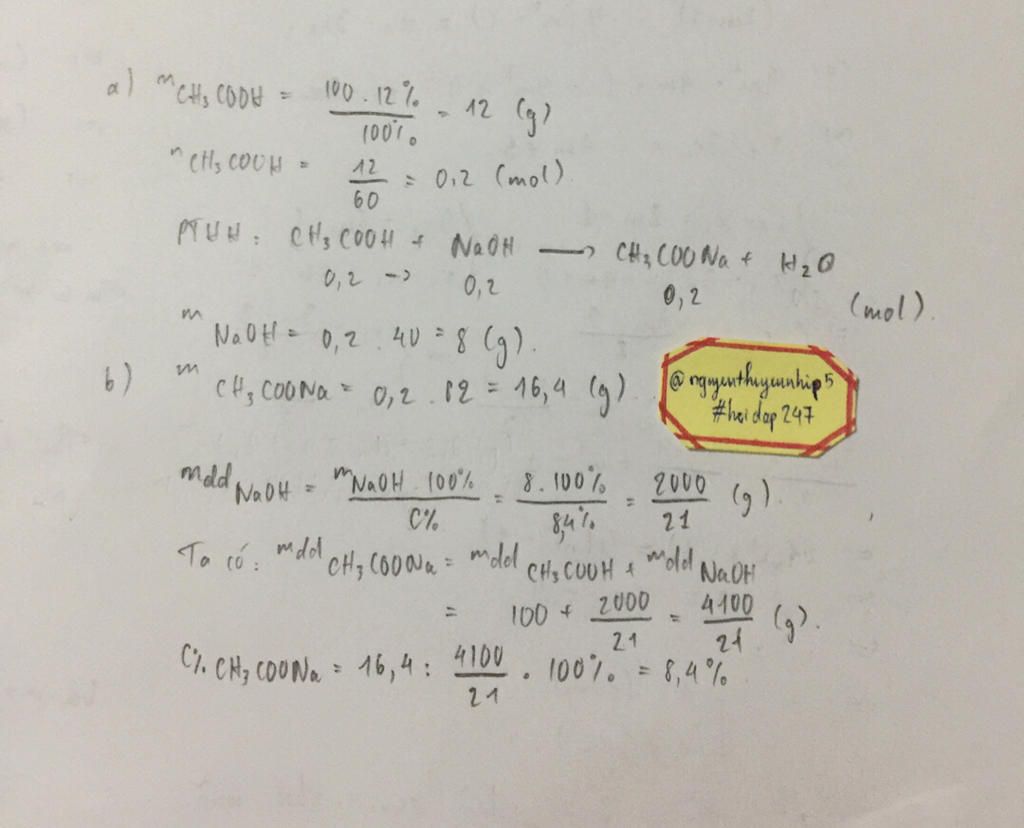 a) mCH3COOH = 100 . 12% / 100% = 12 (g)
nCH3COOH = 12 / 60 = 0,2 (mol).
PTHH: CH3COOH + NaOH → CH3COONa + H2O
0,2 → 0,2 0,2 (mol).
mNaOH = 0,2 . 40 = 8 (g).
b) mCH3COONa = 0,2 . 82 = 16,4 (g)
@nguyenthuyennhip5
#hoidap247
mdd NaOH = mNaOH . 100% / C% = 8 . 100% / 8,4% = 2000 / 21 (g).
Ta có: mdd CH3COONa = mdd CH3COOH + mdd NaOH
= 100 + 2000 / 21 = 4100 / 21 (g).
C% CH3COONa = 16,4 : 4100 / 21 . 100% = 8,4%